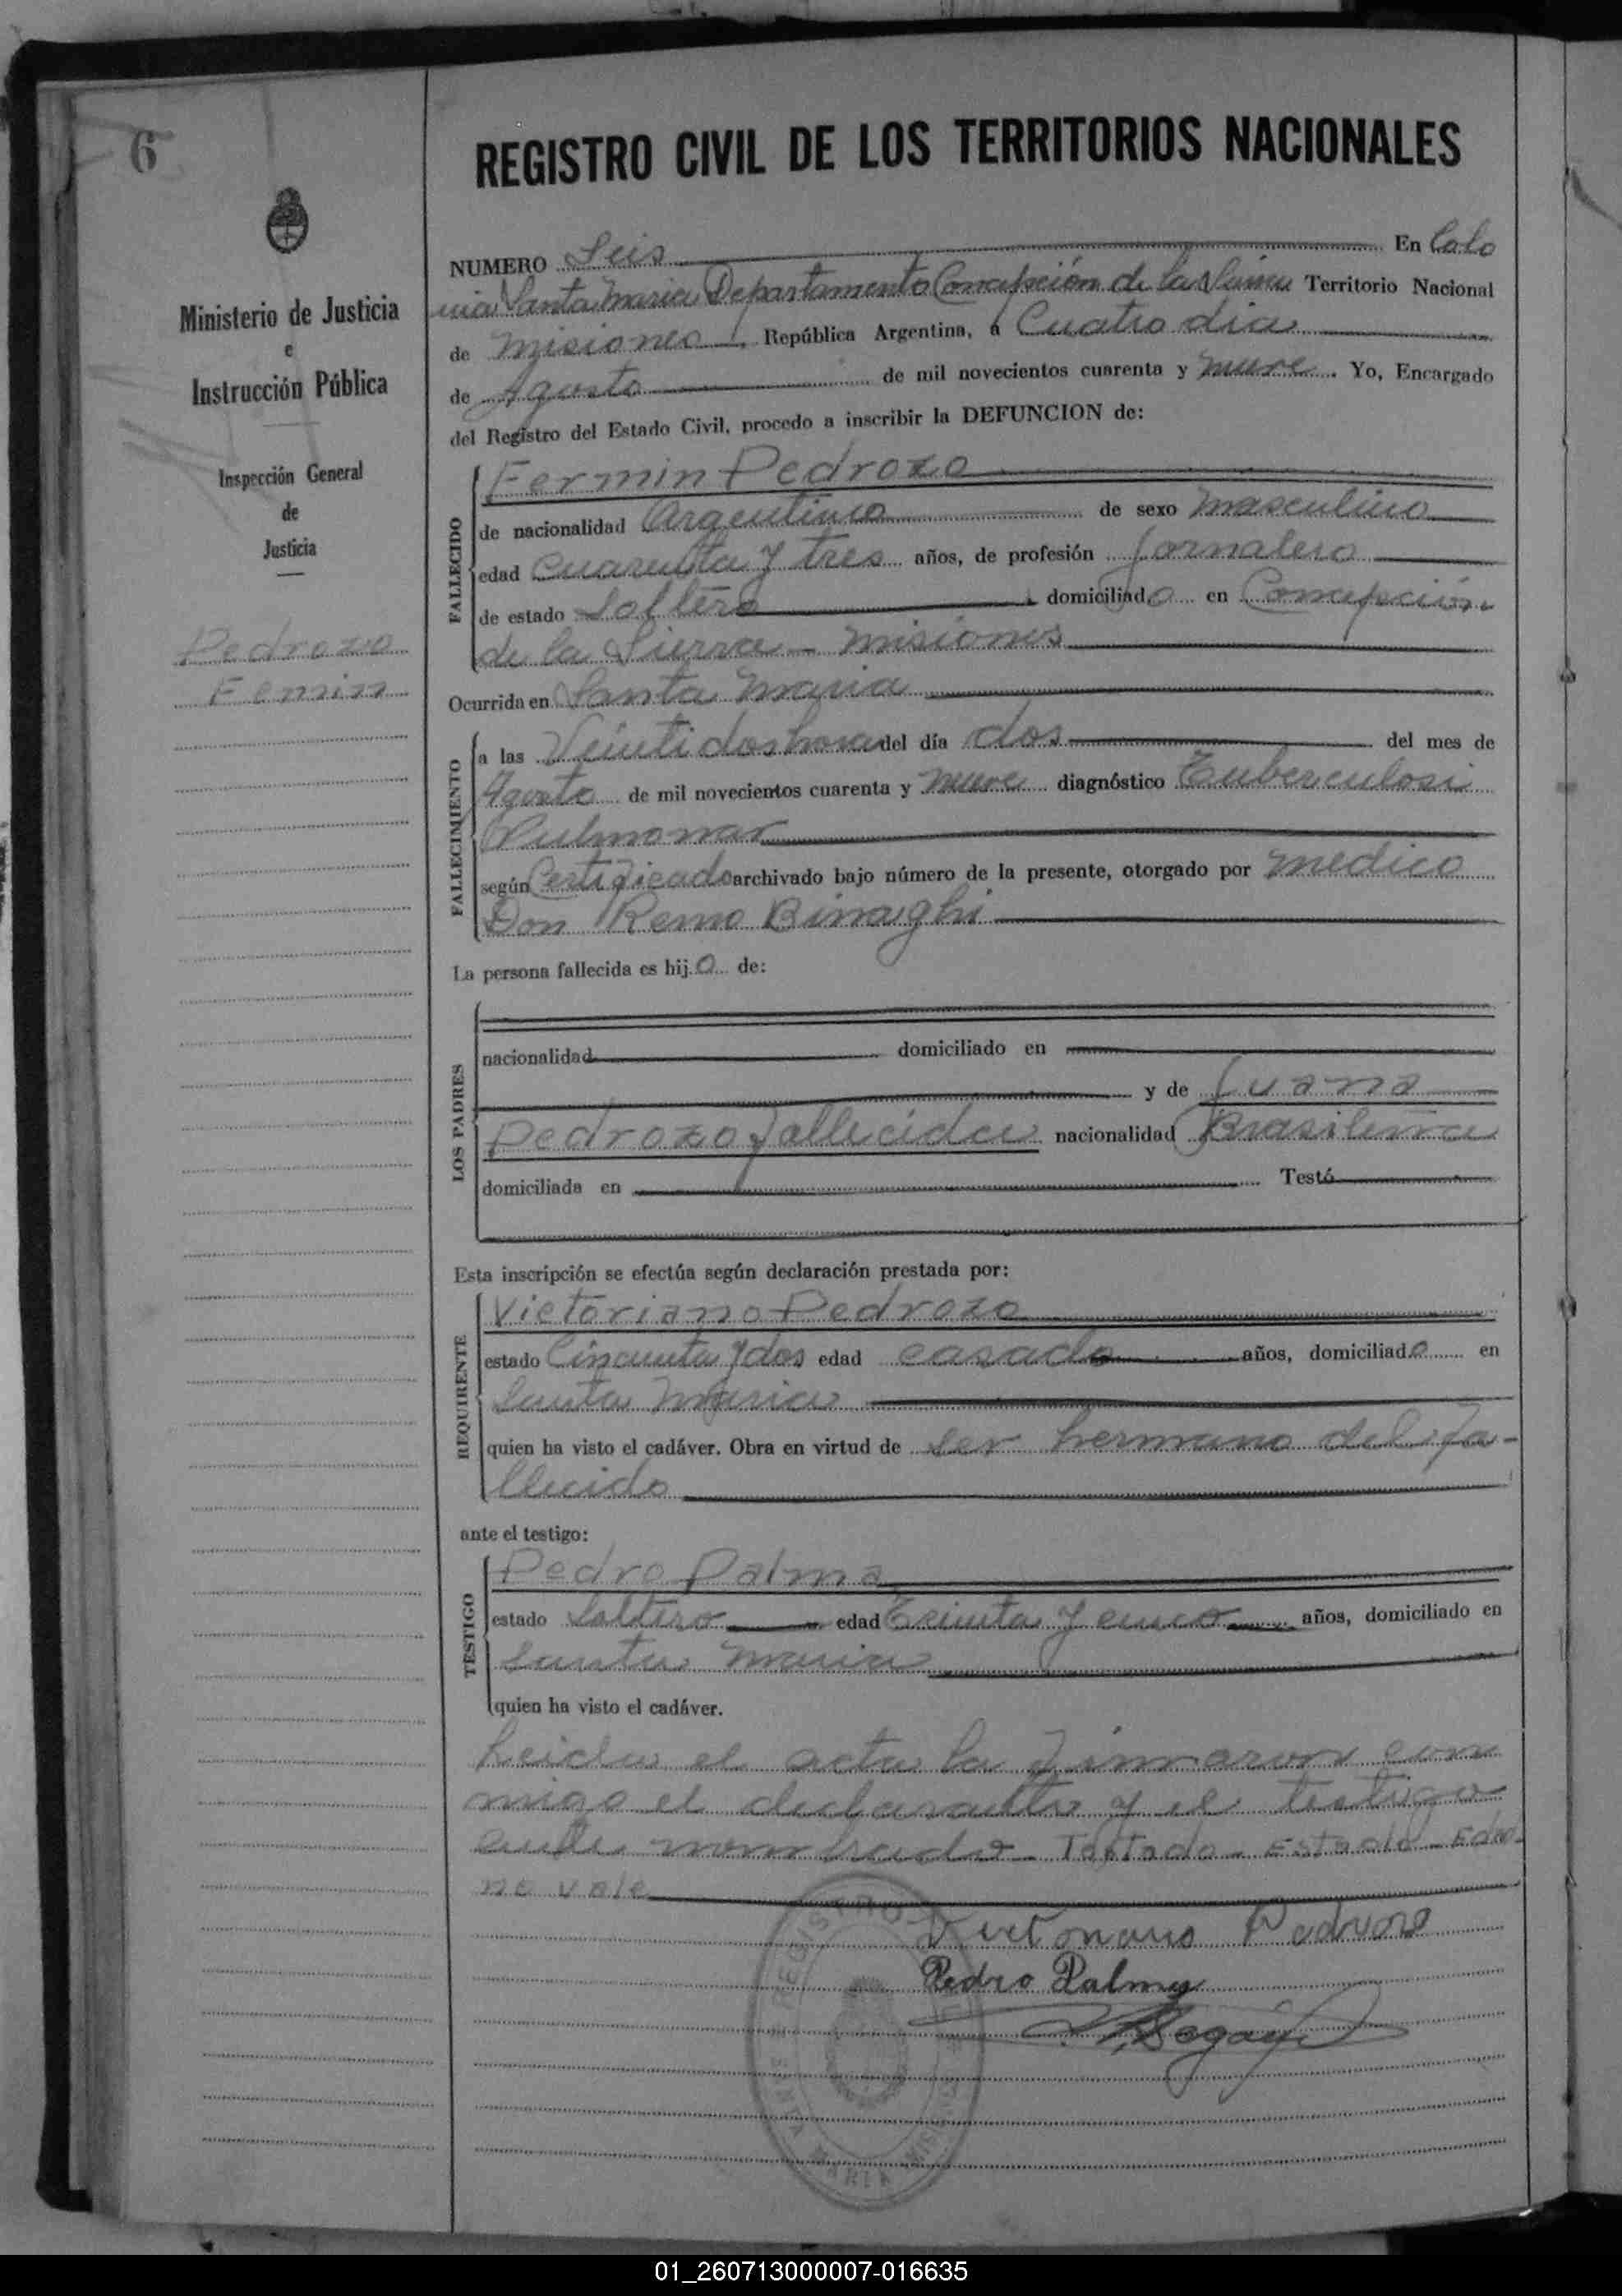 6
REGISTRO CIVIL DE LOS TERRITORIOS NACIONALES
Ministerio de Justicia
e
Instrucción Pública
Inspección General
de
Justicia
Pedrozo
Fermin
NUMERO Seis En Colo
nia Santa Maria Departamento Concepción de la Sierra Territorio Nacional
de Misiones, República Argentina, a Cuatro dia
de Agosto de mil novecientos cuarenta y nueve. Yo, Encargado
del Registro del Estado Civil, procedo a inscribir la DEFUNCION de:
FALLECIDO
Fermin Pedrozo
de nacionalidad Argentino de sexo masculino
edad Cuarenta y tres años, de profesión Jornalero
de estado Soltero domiciliado en Concepción
de la Sierra - Misiones
Ocurrida en Santa Maria
FALLECIMIENTO
a las Veintidos horas del día dos del mes de
Agosto de mil novecientos cuarenta y nueve diagnóstico Tuberculosi
Pulmonar
según Certificado archivado bajo número de la presente, otorgado por medico
Don Remo Binaghi
La persona fallecida es hijo de:
LOS PADRES
nacionalidad domiciliado en
y de Juana
Pedrozo fallecida nacionalidad Brasilera
domiciliada en Testó
Esta inscripción se efectúa según declaración prestada por:
REQUIRENTE
Victoriano Pedrozo
estado Cincuenta y dos edad casado años, domiciliado en
Santa Maria
quien ha visto el cadáver. Obra en virtud de ser hermano del fa-
llecido
ante el testigo:
TESTIGO
Pedro Palma
estado Soltero edad Treinta y cinco años, domiciliado en
Santa Maria
quien ha visto el cadáver.
Leida el acta la firmaron con
migo el declarante y el testigo
ante nombrado - Testado - Estado - Edad
no vale
Victoriano Pedrozo
Pedro Palma
01_260713000007-016635